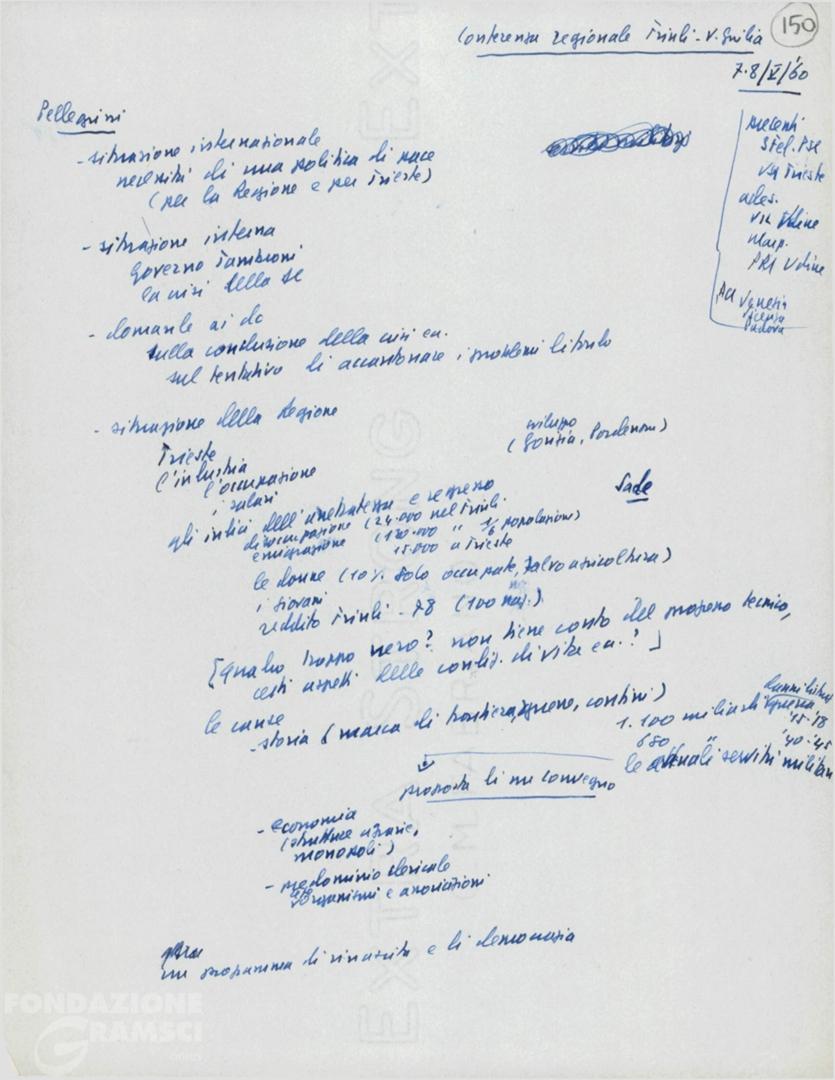 150
Conferenza regionale Friuli-V. Giulia
7-8/V/'60
Pellegrini
presenti
PSI
USI Trieste
ades.
Udine
PRI Udine
ACI Venezia
Vicenza
Padova
- situazione internazionale
necessità di una politica di pace
(per la Regione e per Trieste)
- situazione interna
governo Tambroni
la crisi della DC
- domande ai dc
sulla conclusione della crisi ecc.
sul tentativo di accantonare i problemi di fondo
- situazione della Regione
Trieste
l'industria
l'occupazione
i salari
sviluppo
(Gorizia, Pordenone)
Sade
gli indici dell'arretratezza e regresso
disoccupazione (24.000 nel Friuli
emigrazione (120.000 " 1/6 popolazione)
15.000 a Trieste
le donne (10% solo occupate, salvo agricoltura)
i giovani
reddito Friuli - 78 (100 naz.)
[Quadro troppo nero? non tiene conto del progresso tecnico,
certi aspetti delle condiz. di vita ecc.?]
le cause
- storia (marca di frontiera, guerre, confini)
danni di
guerra
1.100 miliardi '15-'18
680 " '40-'45
le attuali servitù militari
proposta di un convegno
- economia
(strutture agrarie,
monopoli)
- predominio clericale
organismi e associazioni
un programma di rinascita e di democrazia
EXTRA STRONG EXT
FONDAZIONE
GRAMSCI
ONLUS